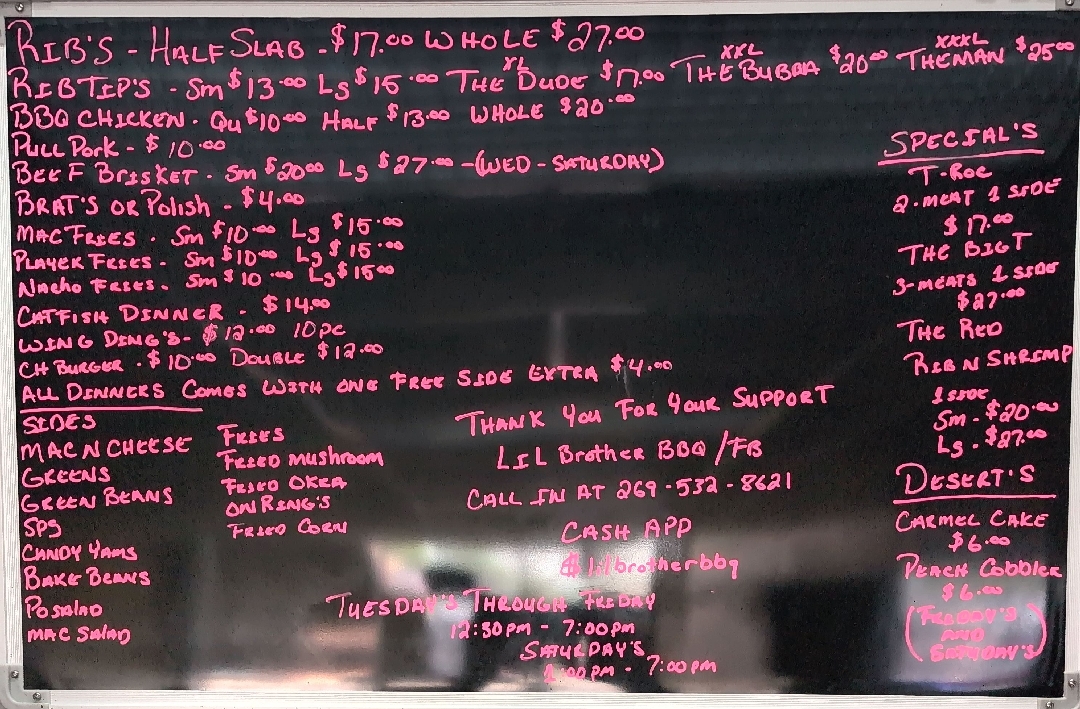 RIB'S - HALF SLAB - $17.00 WHOLE $27.00
RIBTIP'S - Sm $13.00 Lg $15.00 XL THE DUDE $17.00 XXL THE BUBBA $20.00 XXXL THEMAN $25.00
BBQ CHICKEN - Qu $10.00 HALF $13.00 WHOLE $20.00
PULL PORK - $10.00
BEEF BRISKET - Sm $20.00 Lg $27.00 - (WED - SATURDAY)
BRAT'S OR POLISH - $4.00
MAC FRIES - Sm $10.00 Lg $15.00
PLAYER FRIES - Sm $10.00 Lg $15.00
NACHO FRIES - Sm $10.00 Lg $15.00
CATFISH DINNER - $14.00
WING DING'S - $12.00 10pc
CH BURGER - $10.00 DOUBLE $12.00
ALL DINNERS COMES WITH ONE FREE SIDE EXTRA $4.00
SIDES
MAC N CHEESE
GREENS
GREEN BEANS
SPG
CANDY YAMS
BAKE BEANS
POSALAD
MAC SALAD
FRIES
FRIED MUSHROOM
FRIED OKRA
ON RING'S
FRIED CORN
THANK YOU FOR YOUR SUPPORT
LIL BROTHER BBQ / FB
CALL IN AT 269-532-8621
CASH APP
$lilbrotherbbq
TUESDAY'S THROUGH FRIDAY
12:30pm - 7:00pm
SATURDAY'S
1:00pm - 7:00pm
SPECIAL'S
T-ROC
2-MEAT 1 SIDE
$17.00
THE BIG T
3-MEATS 1 SIDE
$27.00
THE RED
RIB N SHRIMP
1 SIDE
Sm - $20.00
Lg - $27.00
DESERT'S
CARMEL CAKE
$6.00
PEACH COBBLER
$6.00
(FRIDAY'S
AND
SATURDAY'S)